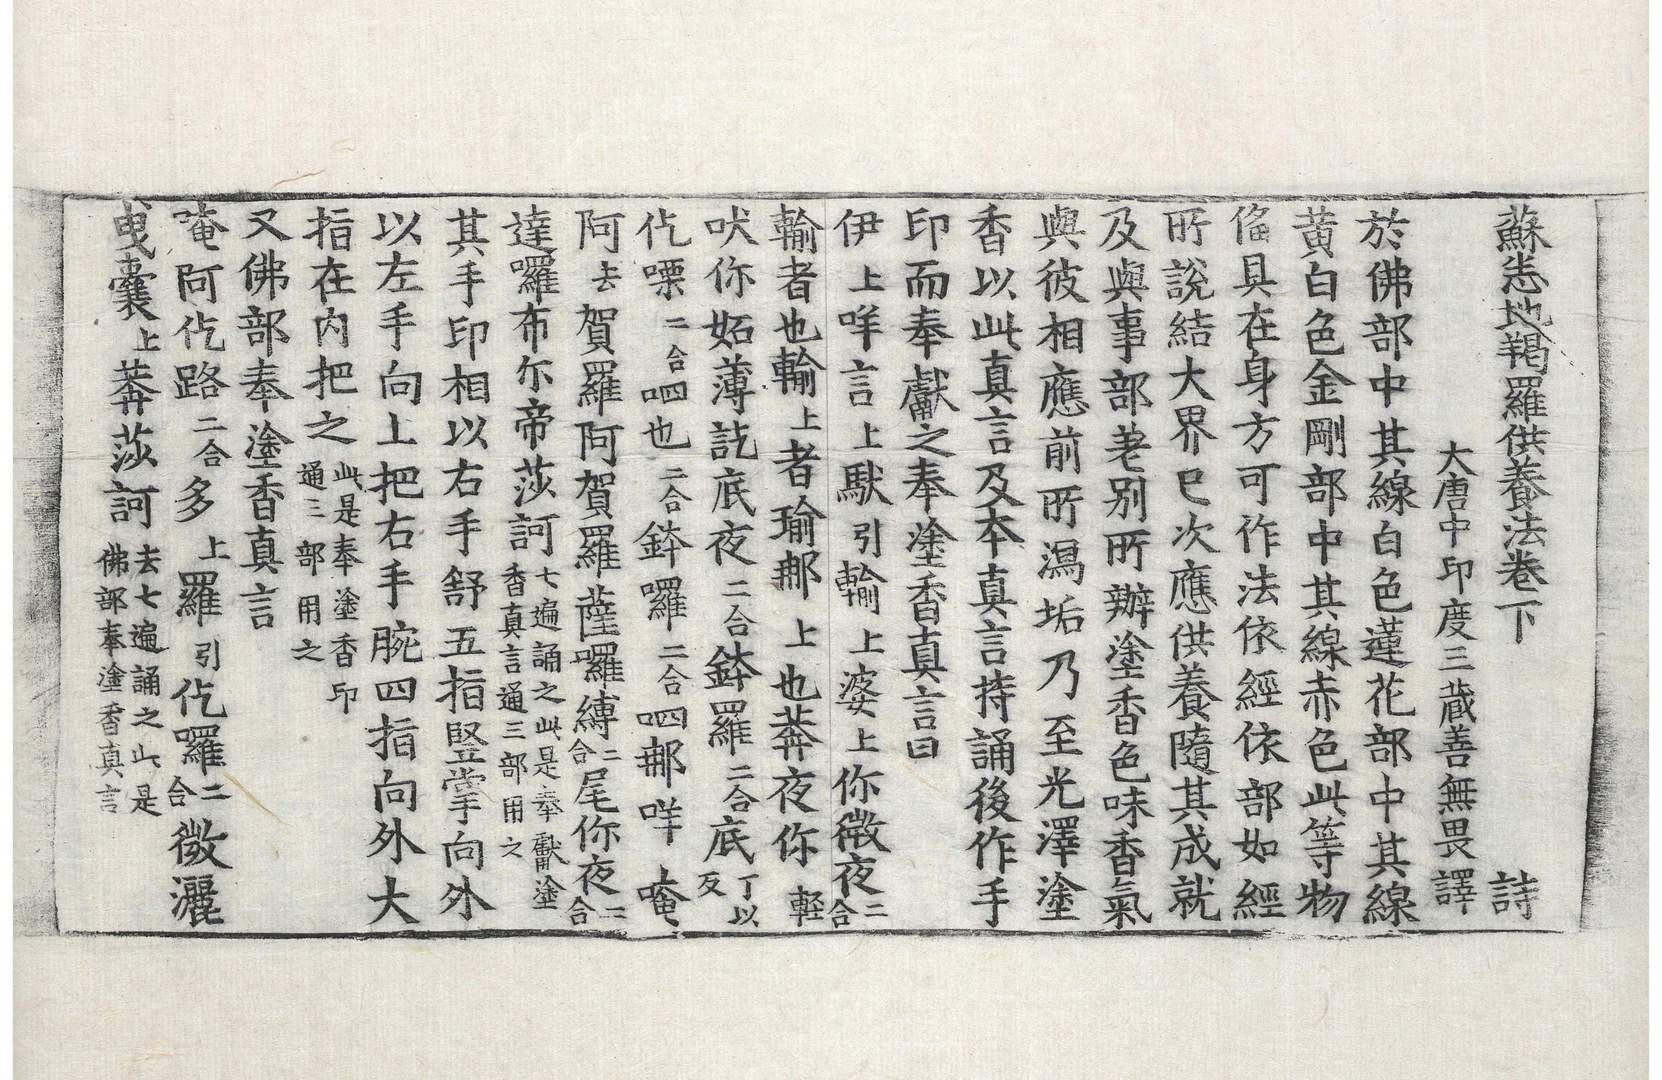 蘇悉地羯羅供養法卷下　詩
大唐中印度三藏善無畏譯
於佛部中其線白色蓮花部中其線
黃白色金剛部中其線赤色此等物
俻具在身方可作法依經依部如經
所說結大界已次應供養隨其成就
及與事部差別所辦塗香色味香氣
與彼相應前所瀉垢乃至光澤塗
香以此真言及本真言持誦後作手
印而奉獻之奉塗香真言曰
伊上咩言上馱引輸上婆上你微夜二合
輸者也輸上者瑜那上也莾夜你輕
吠你妬薄訖底夜二合鉢羅二合底丁以反
仡㗚二合呬也二合鉢囉二合呬那咩唵
阿去賀羅阿賀羅薩囉縛二合尾你夜二合
達囉布尒帝莎訶七遍誦之此是奉獻塗香真言通三部用之
其手印相以右手舒五指竪掌向外
以左手向上把右手腕四指向外大
指在內把之此是奉塗香印通三部用之
又佛部奉塗香真言
唵阿仡路二合多上羅引仡囉二合微灑
曳囊上莾莎訶去七遍誦之此是佛部奉塗香真言